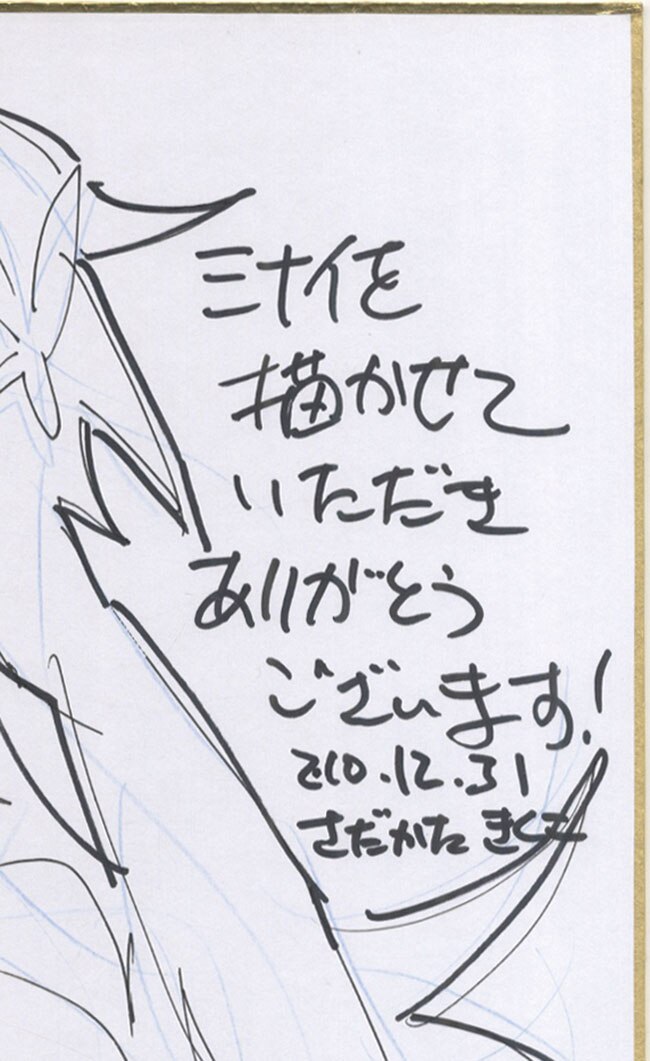 ミナイを
描かせて
いただき
ありがとう
ございます!
2010.12.31
さだかた